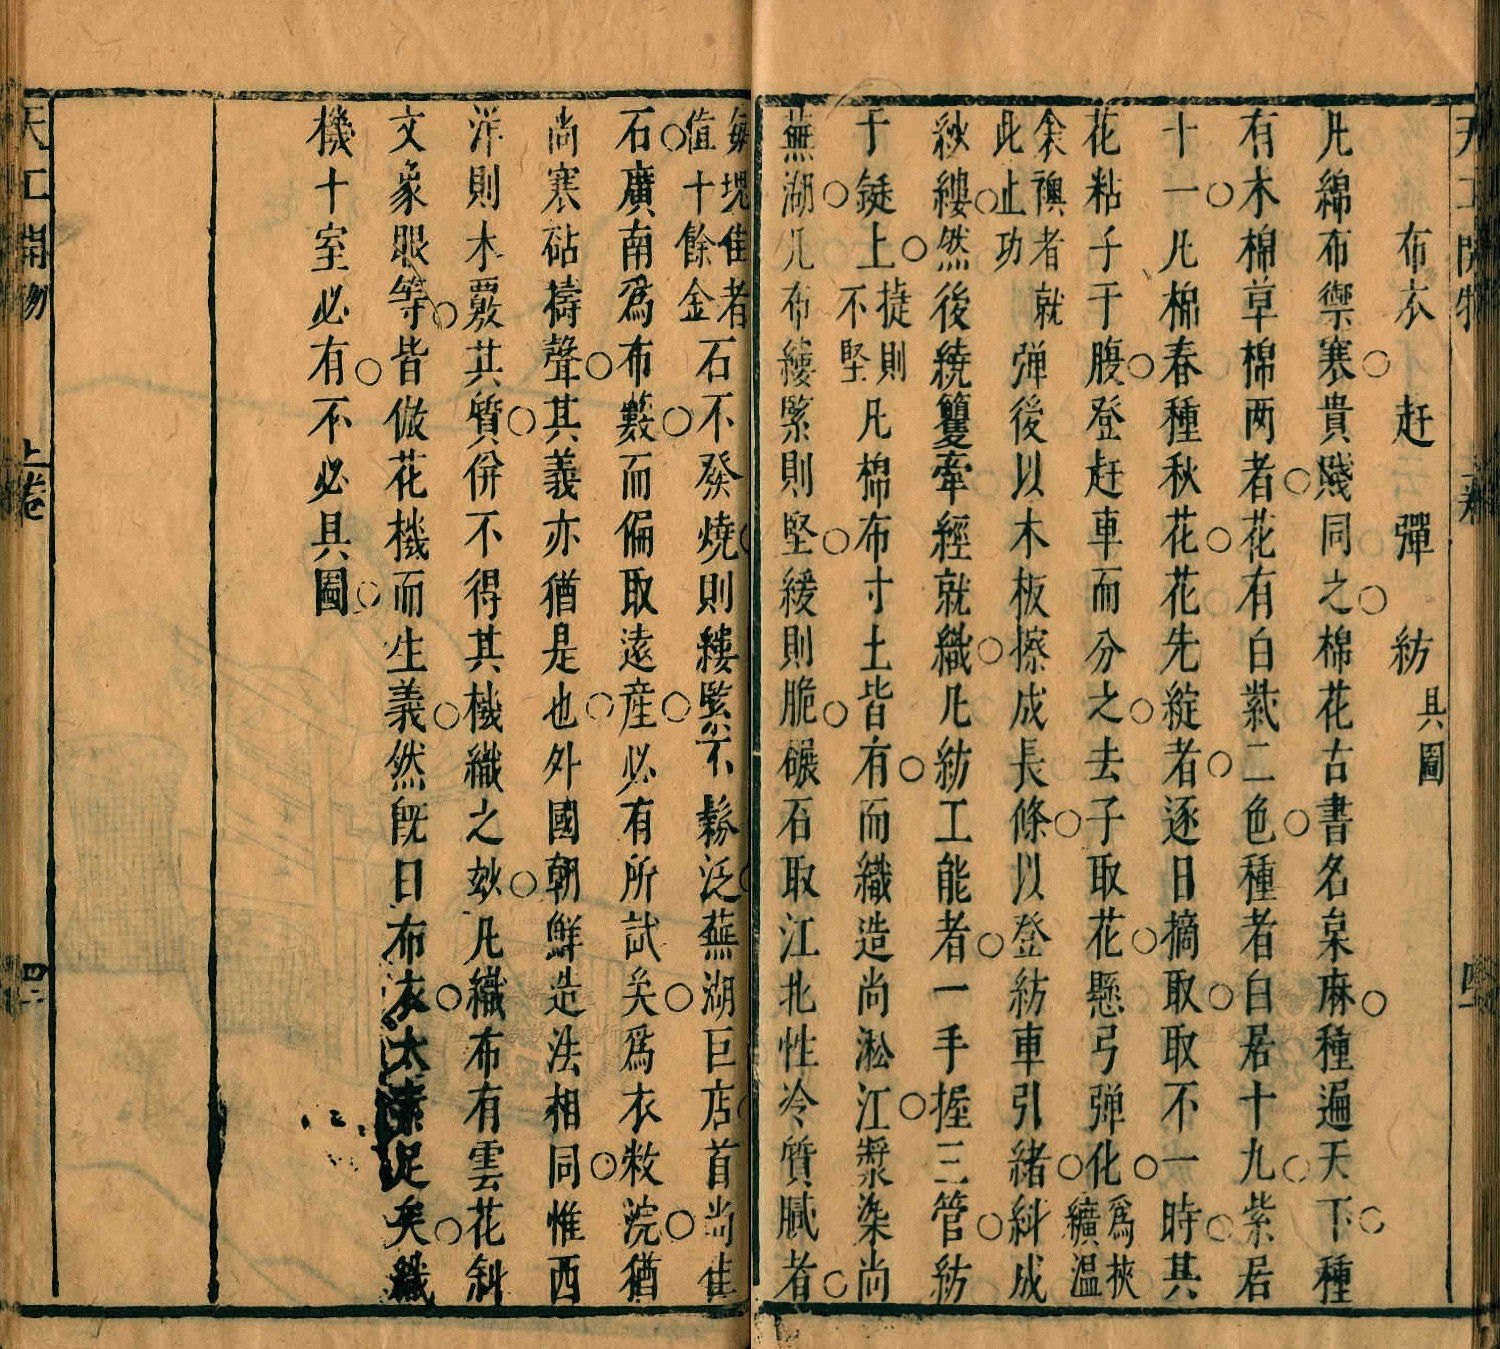 天工開物
上卷
四
布衣 赶 彈 紡 具圖
凡綿布禦寒貴賤同之棉花古書名枲麻種遍天下種
有木棉草棉两者花有白紫二色種者白居十九紫居
十一凡棉春種秋花花先綻者逐日摘取取不一時其
花粘子于腹登赶車而分之去子取花懸弓弹化爲挾纊温
衾襖者就此止功弹後以木板擦成長條以登紡車引緒紏成
紗縷然後繞籰牽經就織凡紡工能者一手握三管紡
于鋌上捷則不堅凡棉布寸土皆有而織造尚淞江漿染尚
蕪湖凡布縷緊則堅緩則脆碾石取江北性冷質膩者
每塊佳者值十餘金石不發燒則縷緊不鬆泛蕪湖巨店首尚佳
石廣南爲布藪而偏取遠産必有所試矣爲衣敝浣猶
尚寒砧擣聲其義亦猶是也外國朝鮮造法相同惟西
洋則未覈其質併不得其機織之妙凡織布有雲花斜
文象眼等皆倣花機而生義然既曰布衣太素足矣織
機十室必有不必具圖
天工開物
上卷
四